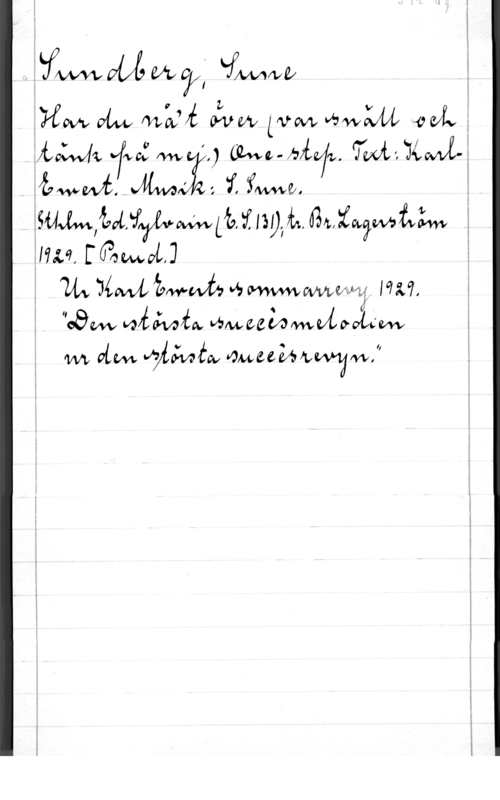 Sundberg, Sune
Har du nå't över (var snäll och
tänk på mej.) One-step. Text: Karl-
Ewert. Musik: S. Sune.
Sthlm, Ed. Sylvain (E.S. 131), tr. Br. Lagerström
1929. [Pseud.]
Ur Karl Ewerts sommarrevy 1929.
"Den största succèsmelodien
ur den största succèsrevyn."